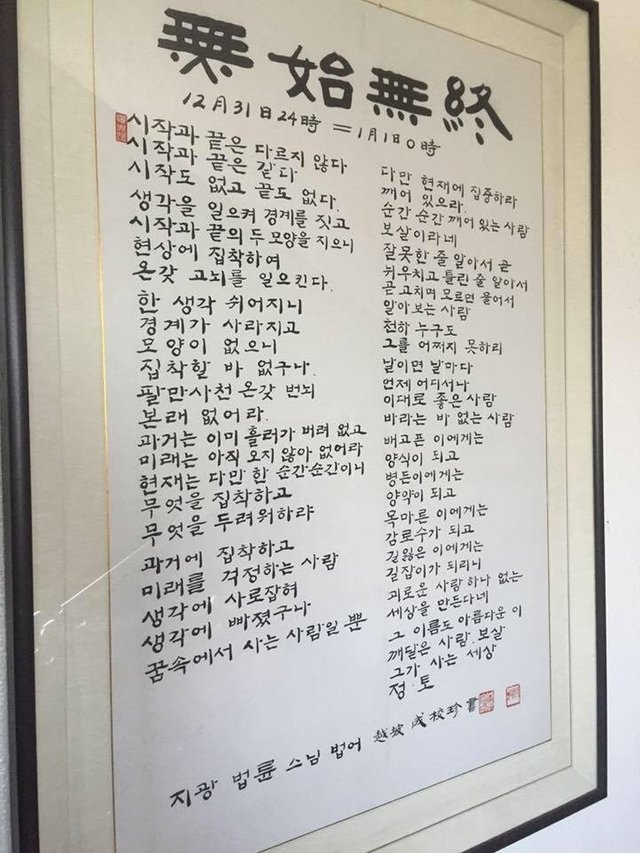 無始無終
12月31日24時 = 1月1日0時
시작과 끝은 다르지 않다
시작과 끝은 같다
시작도 없고 끝도 없다.
생각을 일으켜 경계를 짓고
시작과 끝의 두 모양을 지으니
현상에 집착하여
온갖 고뇌를 일으킨다.
한 생각 쉬어지니
경계가 사라지고
모양이 없으니
집착할 바 없구나.
팔만사천 온갖 번뇌
본래 없어라.
과거는 이미 흘러가 버려 없고
미래는 아직 오지 않아 없어라
현재는 다만 한 순간순간이니
무엇을 집착하고
무엇을 두려워하랴
과거에 집착하고
미래를 걱정하는 사람
생각에 사로잡혀
생각에 빠졌구나
꿈속에서 사는 사람일 뿐
다만 현재에 집중하라
깨어 있으라.
순간 순간 깨어 있는 사람
보살이라네
잘못한 줄 알아서 곧
뉘우치고 틀린 줄 알아서
곧 고치며 모르면 물어서
알아 보는 사람
천하 누구도
그를 어쩌지 못하리
날이면 날마다
언제 어디서나
이대로 좋은 사람
바라는 바 없는 사람
배고픈 이에게는
양식이 되고
병든이에게는
양약이 되고
목마른 이에게는
감로수가 되고
길잃은 이에게는
길잡이가 되리니
괴로운 사람 하나 없는
세상을 만든다네
그 이름도 아름다운 이
깨달은 사람. 보살
그가 사는 세상
정.토
지광 법륜 스님 법어 越坡 成校珍 書